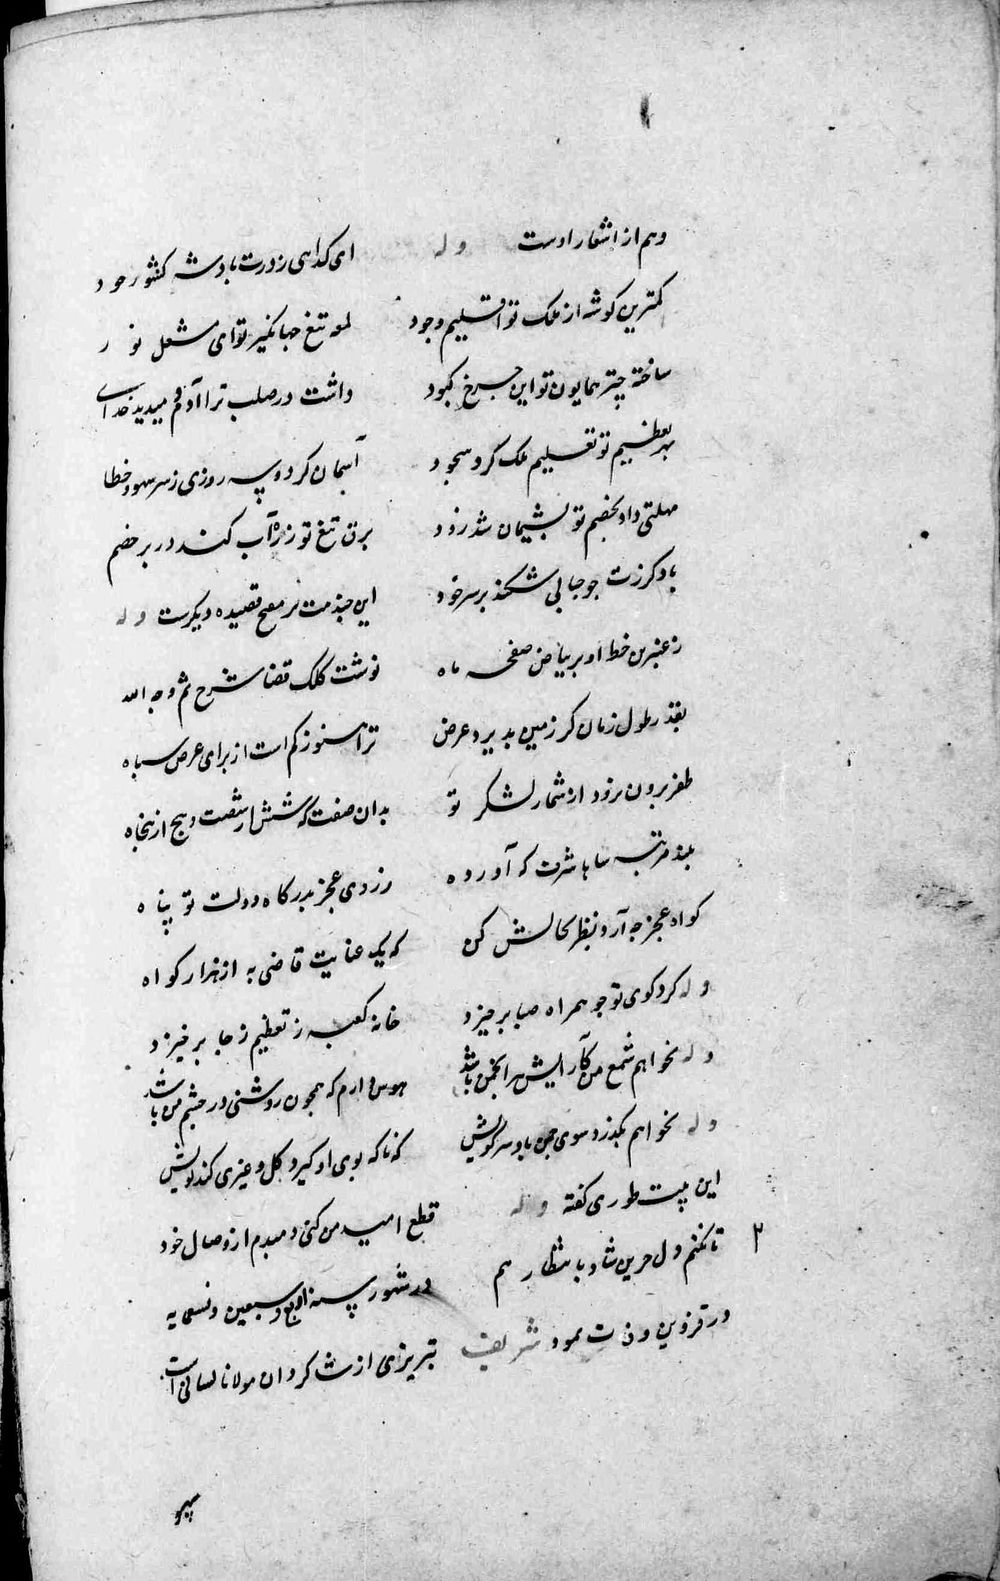 وهم از اشعار اوست وله ای کدایی ز درت بادشه کشور جود
کمترین کوشه از ملک تو اقلیم وجود لمعه تیغ جهانکیر تو ای مشعل نور
ساخته چتر همایون تو این چرخ کبود داشت در صلب ترا آدم و میدید خدای
بهر تعظیم تو تعلیم ملک کرد سجود آسمان کرد دو سه روزی ز سر سهو و خطا
مهلتی داد بخصم تو پشیمان شد زود برق تیغ تو زره آب کند در بر خصم
باد کرزت چو حبابی شکند بر سر خود این چند بیت نیز مع قصیده دیکرست وله
ز عنبرین خط او بر بیاض صفحه ماه نوشت کلک قضا شرح ثم وجه الله
بقدر طول زمان کر زمین پذیرد عرض ترا هنوز کم است از برای عرض سپاه
ظفر برون نرود از شمار لشکر تو بدان صفت که شش از شصت و پنج از پنجاه
بلند مرتبه شاها شرف که آورده ز روی عجز بدرکاه دولت تو پناه
کواه عجز چه آرد نظر بحالش کن که یک عنایت قاضی به از هزار کواه
وله کرد کوی تو چو همراه صبا برخیزد خانه کعبه ز تعظیم ز جا برخیزد
وله نخواهم شمع من کآرایش هر انجمن باشد هوس دارم که همچون روشنی در چشم من باشد
وله نخواهم بکذرد سوی چمن باد سر کویش که ناکه بوی او کیرد کل و غیری کند بویش
این بیت طوری کفته وله قطع امید من کنی دمبدم از وصال خود
تا نکنم دل حزین شاد بانتظار هم در شهور سنه اربع و سبعین و تسعمایه
۲
در قزوین وفات نمود شریف تبریزی از شاکردان مولانا لسانی است
سهو